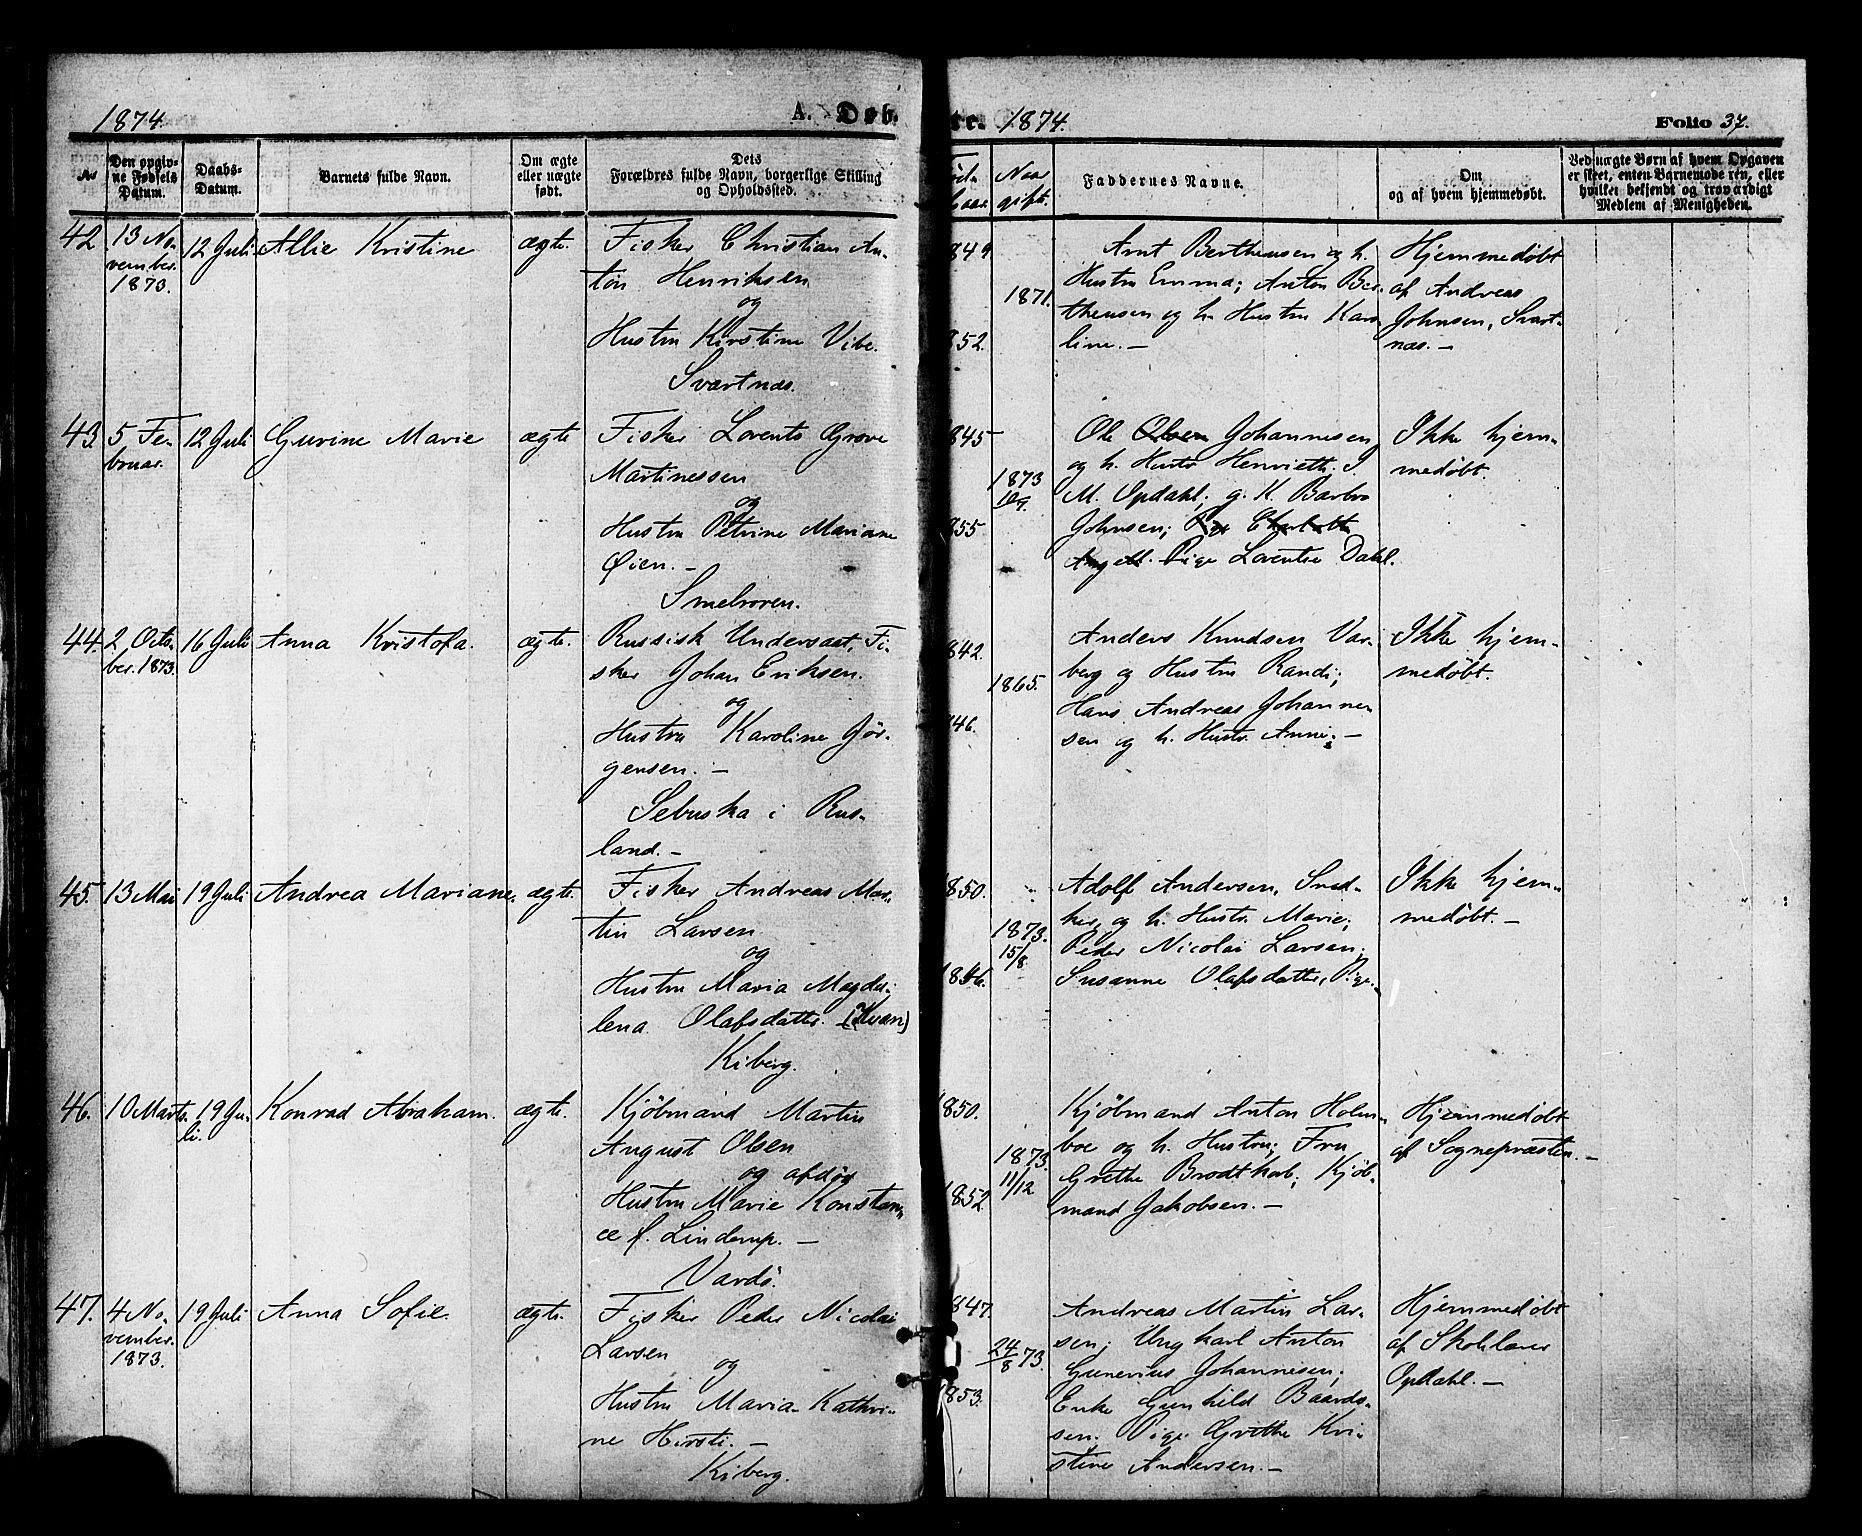 1874. A. Døb
te. 1874. Folio 37.
No
Den opgiv-
ne Fødsels
Datum.
Daabs-
Datum.
Barnets fulde Navn.
Om ægte
eller uægte
født.
Dets
Forældres fulde Navn, borgerlige Stilling
og Opholdssted.
Naar
gift.
Faddernes Navne.
Om
og af hvem hjemmedøbt.
Ved uægte Børn af hvem Opgaven
er skeet, enten Barnemoderen, eller
hvilket bekjendt og troværdigt
Medlem af Menigheden.
42
13 No-
vember.
1873.
12 Juli
Allie Kristine
ægte.
Fisker Christian An-
ton Henriksen
og
Hustru Kirstine Vibe.
Svartnæs.
849
1871.
852.
Arnt Berthensen og h.
Hustru Emma; Anton Ber-
thensen og h. Hustru Karo-
line. —
Hjemmedøbt
af Andreas
Johnsen, Svart-
næs. —
43
5 Fe-
bruar.
12 Juli
Gurine Marie
ægte
Fisker Lorents Grove
Martinessen
og
Hustru Petrine Mariane
Øien. —
Smelroren.
845
1873
855
Ole Olsen Johannesen
og h. Hustr Henriette. J.
M. Opdahl; g. K. Barbro
Johnsen; Pige Charlotte
Angell. Pige Lorentse Dahl.
Ikke hjem-
medøbt.
44.
2 Octo-
ber. 1873.
16 Juli
Anna Kristofa.
ægte.
Russisk Undersaat, Fi-
sker Johan Eriksen.
og
Hustru Karoline Jør-
gensen. —
Sebuska i Rus-
land. —
842.
1865.
46.
Anders Knudsen Var-
berg og Hustru Randi;
Hans Andreas Johanne-
sen og h. Hustr. Anne. —
Ikke hjem-
medøbt.
45.
13 Mai
19 Juli
Andrea Mariane.
ægte.
Fisker Andreas Mar-
tin Larsen
og
Hustru Maria Magda-
lena Olafsdatter. (Kvæn)
Kiberg.
1850.
1873.
15/8
1846.
Adolf Andersen, Sned-
ker, og h. Hustr. Marie;
Peder Nicolai Larsen;
Susanne Olafsdatter, Pige. —
Ikke hjem-
medøbt. —
46.
10 Marts.
19 Ju-
li.
Konrad Abraham.
ægte.
Kjøbmand Martin
August Olsen
og afdøde
Hustru Marie Konstan-
ce f. Linderup. —
Vardö.
1850.
1873.
11/12
1852
Kjøbmand Anton Holm-
boe og h. Hustru; Fru
Grethe Brodtkorb; Kjøb-
mand Jakobsen. —
Hjemmedøbt
af Sognepræsten. —
47.
4 No-
vember.
1873.
19 Juli
Anna Sofie.
ægte.
Fisker Peder Nicolai
Larsen
og
Hustru Maria Kathri-
ne Hirsti. —
Kiberg.
847
24/8 73.
1853.
Andreas Martin Lar-
sen; Ungkarl Anton
Gunerius Johannesen;
Enke Gunhild Baards-
sen. Pige Grethe Kri-
stine Andersen. —
Hjemmedøbt
af Skolelærer
Opdahl. —